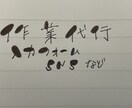 作業代行
入力フォーム
SNSなど